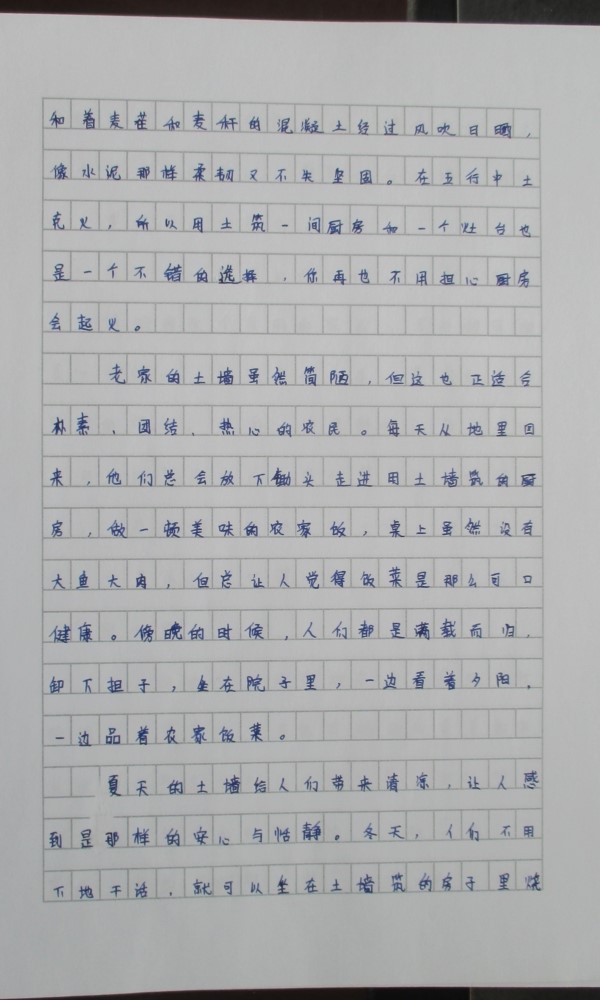 和着麦茬和麦秆的混凝土经过风吹日晒，
像水泥那样柔韧又不失坚固。在五行中土
克火，所以用土筑一间厨房和一个灶台也
是一个不错的选择，你再也不用担心厨房
会起火。
老家的土墙虽然简陋，但这也正适合
朴素、团结、热心的农民。每天从地里回
来，他们总会放下锄头走进用土墙筑的厨
房，做一顿美味的农家饭，桌上虽然没有
大鱼大肉，但总让人觉得饭菜是那么可口
健康。傍晚的时候，人们都是满载而归，
卸下担子，坐在院子里，一边看着夕阳，
一边品着农家饭菜。
夏天的土墙给人们带来清凉，让人感
到是那样的安心与恬静。冬天，人们不用
下地干活，就可以坐在土墙筑的房子里烧